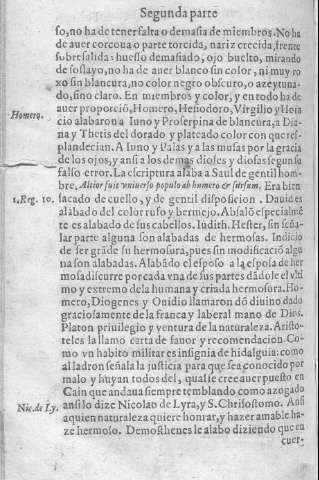 Segunda parte
so, no ha de tener falta o demasia de miembros. No ha
de auer corcoua o parte torcida, nariz crecida, frente
sobresalida: huesso demasiado, ojo buelto, mirando
de soslayo, no ha de auer blanco sin color, ni muy ro
xo sin blancura, no color negro obscuro, o azeytuna-
do, sino claro. En miembros y color, y en todo ha de
auer proporciō, Homero, Heliodoro, Virgilio y Hora
Homero.
cio alabaron a Iuno y Proserpina de blancura, a Dia-
na y Thetis del dorado y plateado color con que res-
plandecian. A Iuno y Palas y a las musas por la gracia
de los ojos, y ansi a los demas dioses y diosas segun su
falso error. La escriptura alaba a Saul de gentil hom-
bre. Altior fuit vniuerso populo ab humero & sursum. Era bien
1. Reg. 10.
sacado de cuello, y de gentil disposicion. Dauid es
alabado del color rufo y bermejo. Absalō especialmē
te es alabado de sus cabellos. Iudith. Hester, sin seña-
lar parte alguna son alabadas de hermosas. Indicio
de ser grāde su hermosura, pues sin modificaciō algu
na son alabadas. Alabādo el esposo a la esposa de her
mosa discurre por cada vna de sus partes dādole el vlti
mo y extremo de la humana y criada hermosura. Ho-
mero, Diogenes y Ouidio llamaron dō diuino dado
graciosamente de la franca y laberal mano de Dios.
Platon priuilegio y ventura de la naturaleza. Aristo-
teles la llamo carta de fauor y recomendacion. Co-
mo vn habito militar es insignia de hidalguia: como
al ladron señala la justicia para que sea conocido por
malo y huyan todos del, qual se cree auer puesto en
Cain que andaua siempre temblando como azogado
Nic. de Ly.
ansi lo dize Nicolao de Lyra, y S. Chrisostomo. Ansi
a quien naturaleza quiere honrar, y hazer amable ha-
ze hermoso. Demosthenes le alabo diziendo que en
cuer-